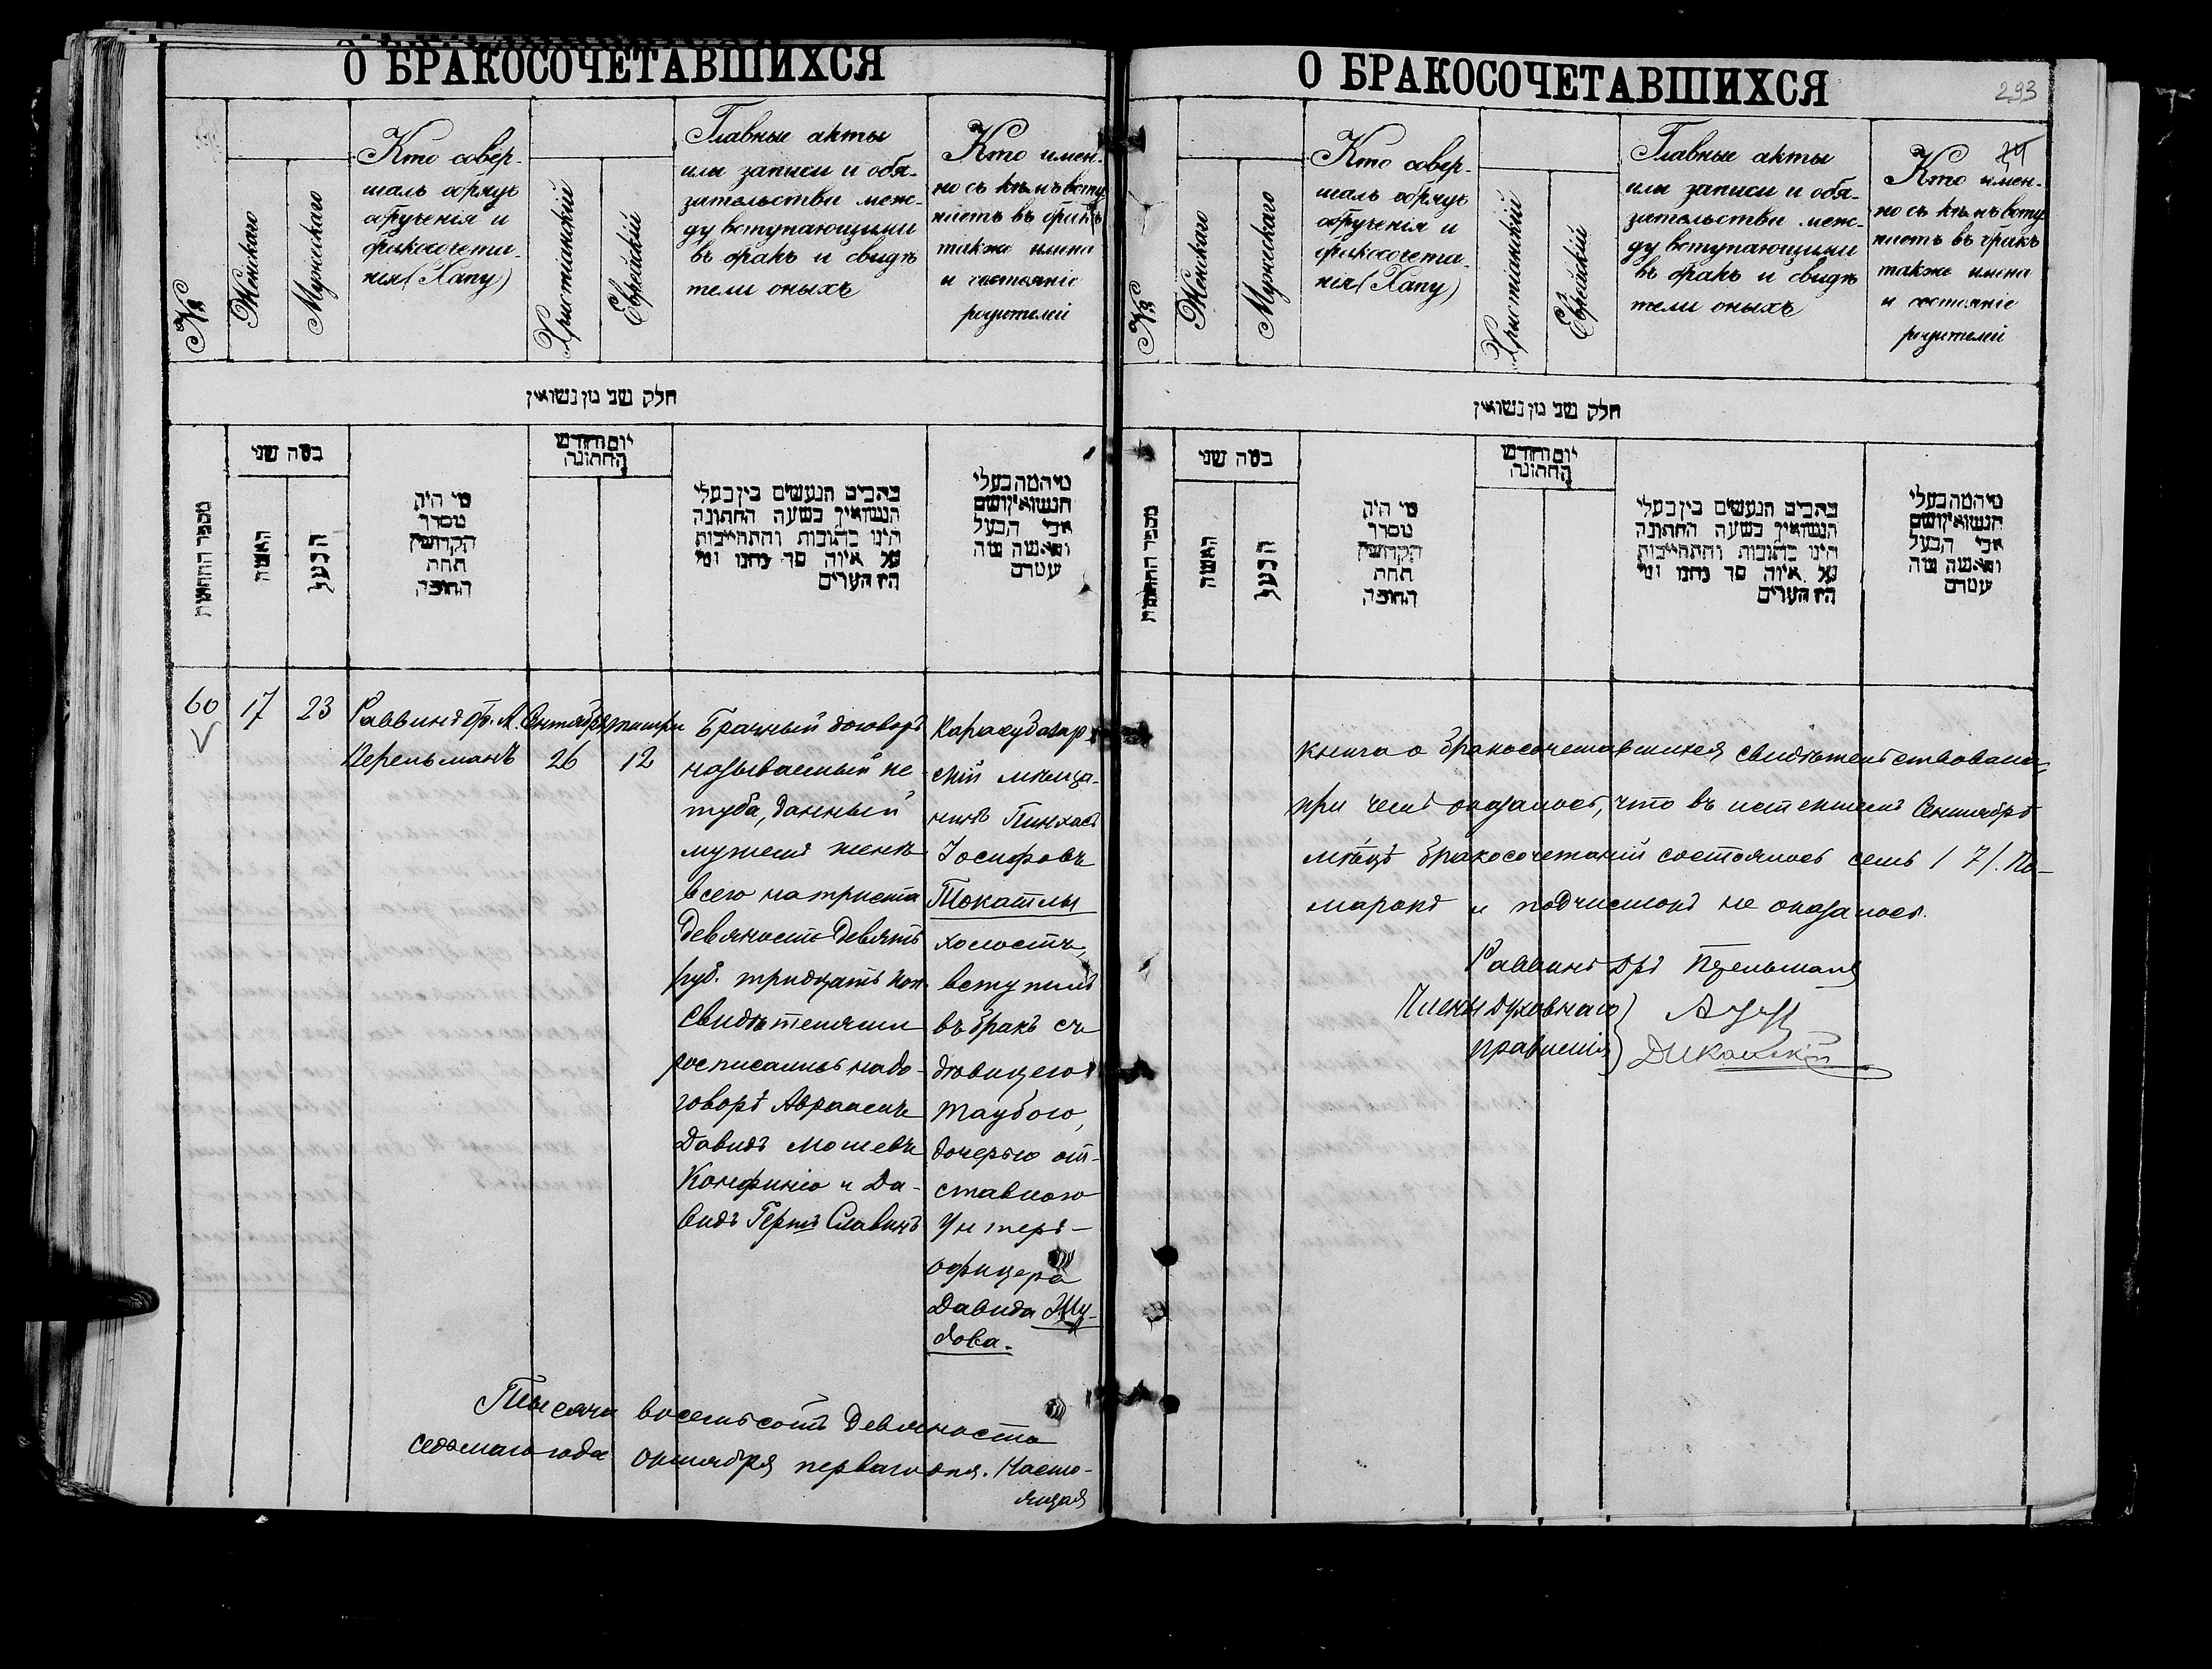 О БРАКОСОЧЕТАВШИХСЯ
№
Женскаго
Мужескаго
Кто совер-
шалъ обрядъ
обрученія и
бракосочета-
нія (Хапу)
Христіанскій
Еврейскій
Главные акты
или записи и обя-
зательства меж-
ду вступающими
въ бракъ и свидѣ
тели оныхъ
Кто имен-
но съ кѣмъ всту
паетъ въ бракъ
также имена
и состояніе
родителей
חלק שני מן נשואין
מספר החתונות
במה שני
האשה
הבעל
מי היה
מסדר
הקדושין
תחת
החופה
יום וחודש
החתונה
כתבים הנעשים בין בעלי
הנשואין בשעה החתונה
היינו כתובות והתחייבות
על איזה סך נתנו ומי
הם העדים
מי המה בעלי
הנשואין ושם
אבי הבעל
והאשה מה
עמדם
60
17
23
Раввинъ Др. М.
Перельманъ
Сентября
26
тишри
12
Брачный договоръ
называемый ке-
туба, данный
мужемъ женѣ
всего на триста
девяносто девять
руб. тридцать коп.
Свидѣтелями
росписались на до-
говорѣ Авраамъ
Давидъ Мошевъ
Конфино и Да-
видъ Герть Славинъ
Карасубазар-
скій мѣща-
нинъ Пинхасъ
Іосифовъ
Токатлы
холостъ,
вступилъ
въ бракъ съ
дѣвицею
Таубою,
дочерью от-
ставного
Унтеръ-
офицера
Давида Жу-
дова.
Тысяча восемьсотъ девяносто
седьмаго года октября перваго дня. Насто-
ящая
О БРАКОСОЧЕТАВШИХСЯ
293
№
Женскаго
Мужескаго
Кто совер-
шалъ обрядъ
обрученія и
бракосочета-
нія (Хапу)
Христіанскій
Еврейскій
Главные акты
или записи и обя-
зательства меж-
ду вступающими
въ бракъ и свидѣ
тели оныхъ
Кто имен-
но съ кѣмъ всту
паетъ въ бракъ
также имена
и состояніе
родителей
חלק שני מן נשואין
מספר החתונות
במה שני
האשה
הבעל
מי היה
מסדר
הקדושין
תחת
החופה
יום וחודש
החתונה
כתבים הנעשים בין בעלי
הנשואין בשעה החתונה
היינו כתובות והתחייבות
על איזה סך נתנו ומי
הם העדים
מי המה בעלי
הנשואין ושם
אבי הבעל
והאשה מה
עמדם
книга о бракосочетавшихся свидѣтельствована,
при чемъ оказалось, что въ истекшемъ Сентябрѣ
мѣсцѣ бракосочетаній состоялось семь /7/. По-
марокъ и подчистокъ не оказалось.
Раввинъ Дръ Перельманъ
Члены духовнаго
правленія